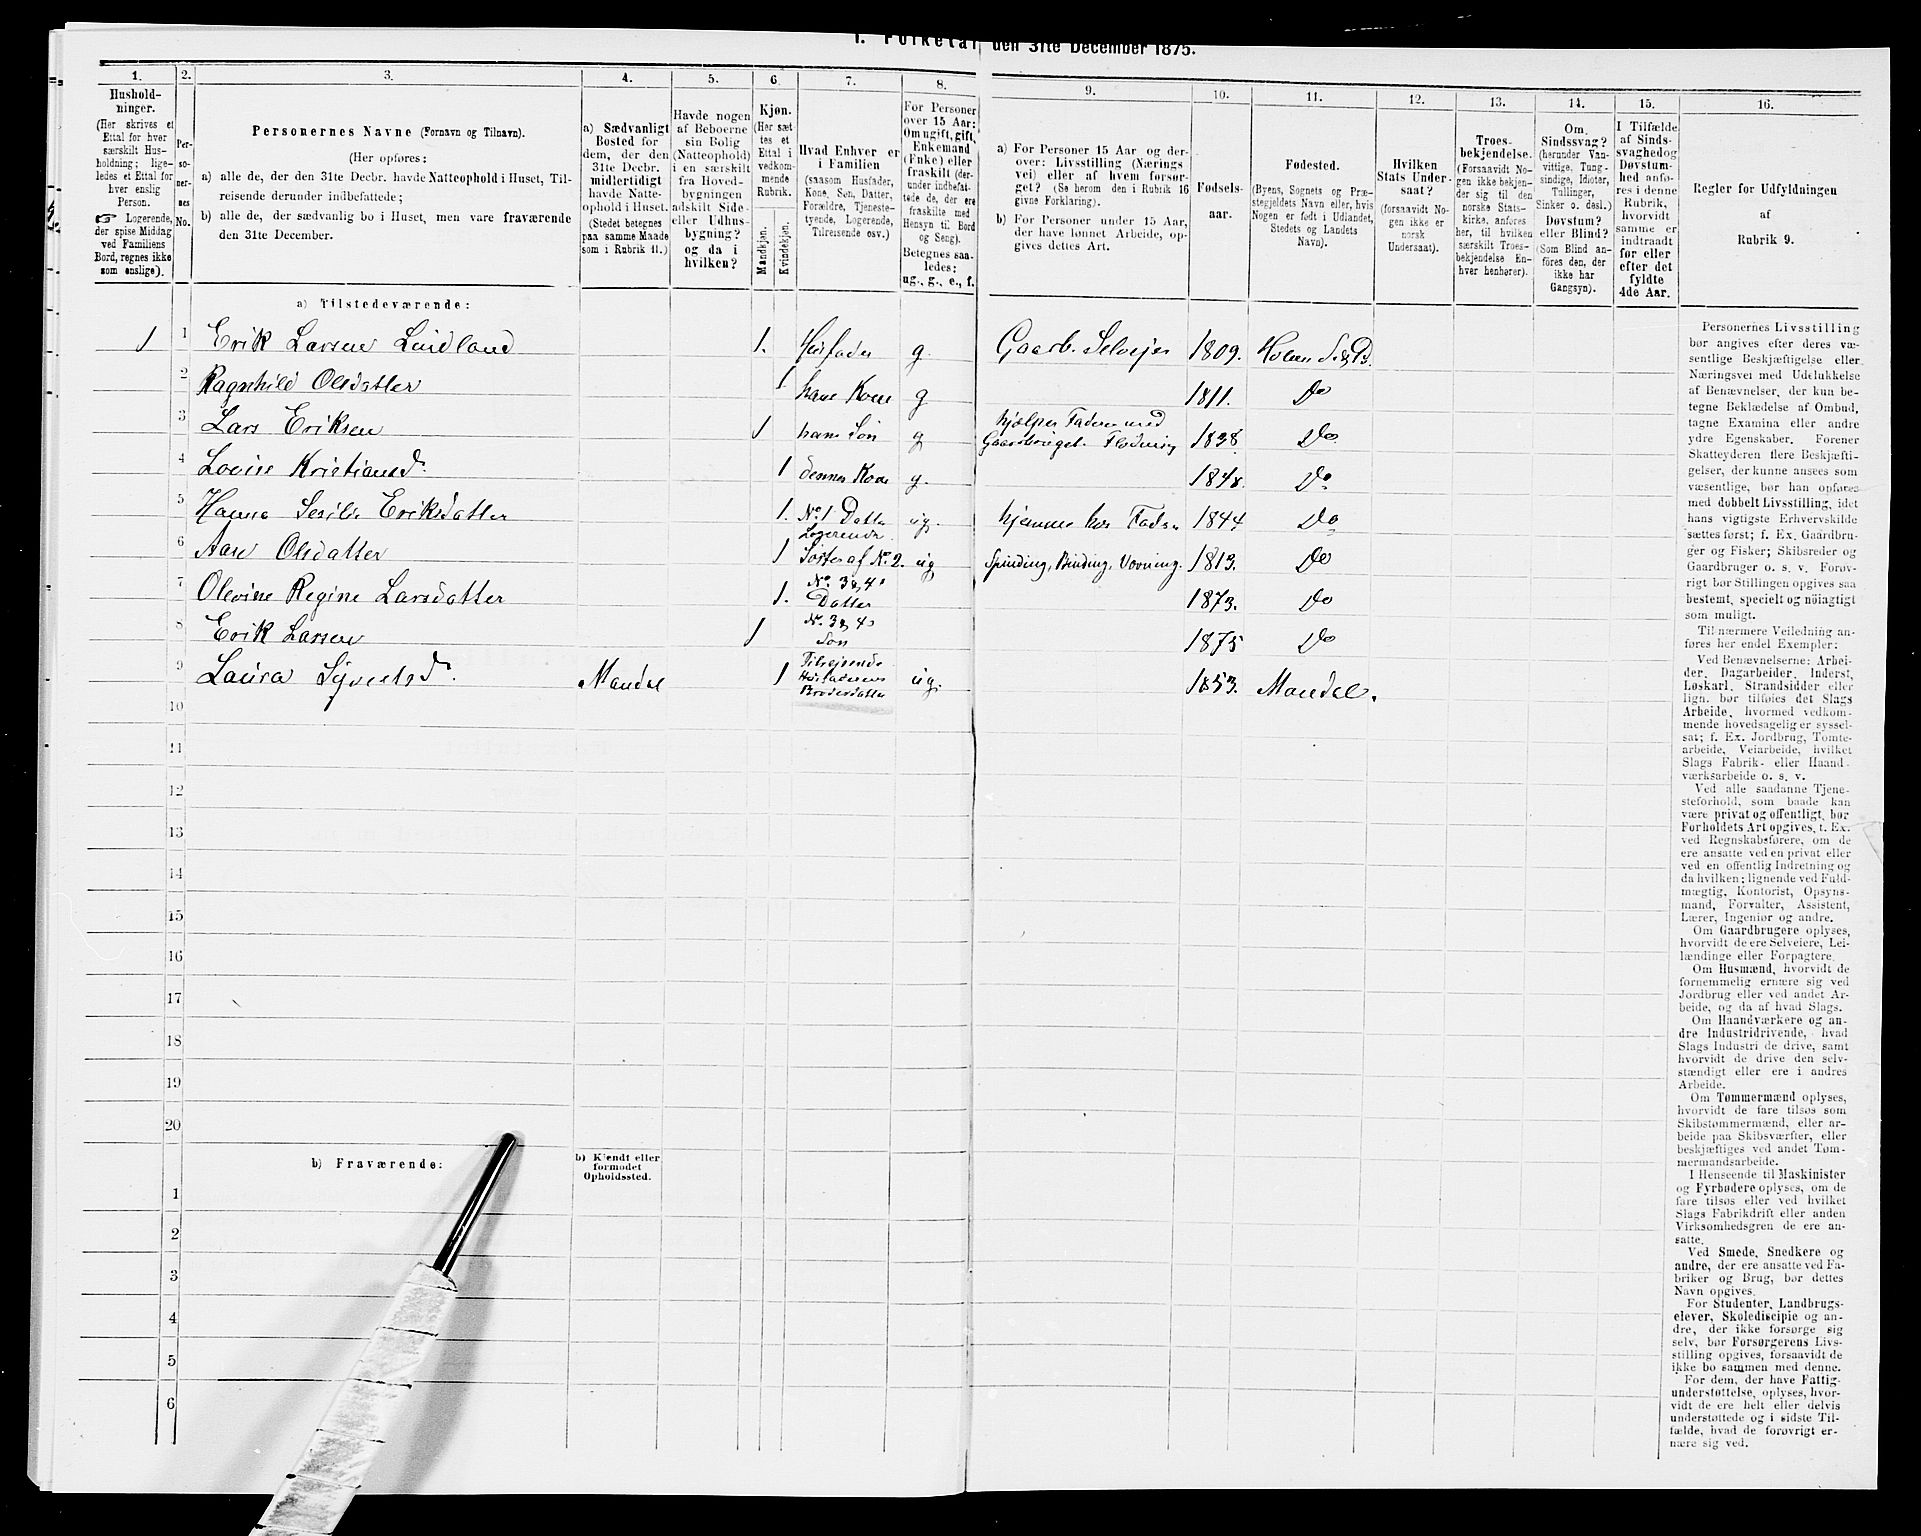 I. Folketal den 31te December 1875.
1.
2.
3.
4.
5.
6.
7.
8.
9.
10.
11.
12.
13.
14.
15.
16.
Hushold-
ninger.
(Her skrives et
Ettal for hver
særskilt Hus-
holdning; lige-
ledes et Ettal for
hver enslig
Person.
☞ Logerende,
der spise Middag
ved Familiens
Bord, regnes ikke
som enslige).
Per-
so-
ner-
nes
No.
Personernes Navne (Fornavn og Tilnavn).
(Her opføres:
a) alle de, der den 31te Decbr. havde Natteophold i Huset, Til-
reisende derunder indbefattede;
b) alle de, der sædvanlig bo i Huset, men vare fraværende
den 31te December.
a) Sædvanligt
Bosted for
dem, der den
31te Decbr.
midlertidigt
havde Natte-
ophold i Huset.
(Stedet betegnes
paa samme Maade
som i Rubrik 11.)
Havde nogen
af Beboerne
sin Bolig
(Natteophold)
i en særskilt
fra Hoved-
bygningen
adskilt Side-
eller Udhus-
bygning?
og da i
hvilken?
Kjøn.
(Her sæt
tes et
Ettal i
vedkom-
mende
Rubrik.
Mandkjøn.
Kvindekjøn.
Hvad Enhver er
i Familien
(saasom Husfader,
Kone, Søn, Datter,
Forældre, Tjeneste-
tyende, Logerende,
Tilreisende osv.)
For Personer
over 15 Aar:
Om ugift, gift,
Enkemand
(Enke) eller
fraskilt (der-
under indbefat-
tede de, der ere
fraskilte med
Hensyn til Bord
og Seng).
Betegnes saa-
ledes:
ug., g., e., f.
a) For Personer 15 Aar og der-
over: Livsstilling (Nærings
vei) eller af hvem forsør-
get? (Se herom den i Rubrik 16
givne Forklaring).
b) For Personer under 15 Aar,
der have lønnet Arbeide, op-
gives dettes Art.
Fødsels-
aar.
Fødested.
(Byens, Sognets og Præ-
stegjeldets Navn eller, hvis
Nogen er født i Udlandet,
Stedets og Landets
Navn).
Hvilken
Stats Under-
saat?
(forsaavidt No-
gen ikke er
norsk
Undersaat).
Troes-
bekjendelse.
(Forsaavidt No-
gen ikke bekjen-
der sig til den
norske Stats-
kirke, anføres
her, til hvilken
særskilt Troes-
bekjendelse En-
hver henhører).
Om
Sindssvag?
(herunder Van-
vittige, Tung-
sindige, Idioter,
Tullinger,
Sinker o. desl.)
Døvstum?
eller Blind?
(Som Blind an-
føres den, der
ikke har
Gangsyn).
I Tilfælde
af Sinds-
svaghed og
Døvstum-
hed anfø-
res i denne
Rubrik,
hvorvidt
samme er
indtraadt
før eller
efter det
fyldte
4de Aar.
Regler for Udfyldningen
af
Rubrik 9.
a) Tilstedeværende:
1 1 Erik Larsen Lindland 1. Husfader g. Gaarb. Selvejer 1809. Holum S. & P.
2 Ragnhild Olsdatter 1 hans Kone g 1811. Do
3 Lars Eriksen 1 hans Søn g hjælper Faderen med
Gaardbruget. Flødning 1838. Do
4 Lovise Kristiansd. 1 dennes Kone g. 1848. Do
5 Hanna Sesilie Eriksdatter 1. No. 1 Datter ug. hjemme hos Faderen 1844 Do
6 Aase Olsdatter 1 Logerende
Søster af No. 2. ug Spinding, Binding, Vævning. 1813. Do
7 Olevine Regine Larsdatter 1. No. 3 & 4s
Datter 1873. Do
8 Erik Larsen 1 No. 3 & 4s
Søn 1875 Do
9 Laura Syvertsd. Mandal 1 Tilrejsende
Husfaderens
Brodersdatter ug. 1853. Mandal.
10
11
12
13
14
15
16
17
18
19
20
b) Fraværende:
b) Kjendt eller
formodet
Opholdssted.
1
2
3
4
5
6
Personernes Livsstilling
bør angives efter deres væ-
sentlige Beskjæftigelse eller
Næringsvei med Udelukkelse
af Benævnelser, der kun be-
tegne Beklædelse af Ombud,
tagne Examina eller andre
ydre Egenskaber. Forener
Skatteyderen flere Beskjæfti-
gelser, der kunne ansees som
væsentlige, bør han opføres
med dobbelt Livsstilling, idet
hans vigtigste Erhvervskilde
sættes først; f. Ex. Gaardbru-
ger og Fisker; Skibsreder og
Gaardbruger o. s. v. Forøv-
rigt bør Stillingen opgives saa
bestemt, specielt og nöiagtigt
som muligt.
Til nærmere Veiledning an-
føres her endel Exempler:
Ved Benævnelserne: Arbei-
der, Dagarbeider, Inderst,
Løskarl, Strandsidder eller
lign. bør tilføies det Slags
Arbeide, hvormed vedkom-
mende hovedsagelig er syssel-
sat; f. Ex. Jordbrug, Tomte-
arbeide, Veiarbeide, hvilket
Slags Fabrik- eller Haand-
værksarbeide o. s. v.
Ved alle saadanne Tjene-
steforhold, som baade kan
være privat og offentligt, bør
Forholdets Art opgives, t. Ex.
ved Regnskabsførere, om de
ere ansatte ved en privat eller
ved en offentlig Indretning og
da hvilken; lignende ved Fuld-
mægtig, Kontorist, Opsyns-
mand, Forvalter, Assistent,
Lærer, Ingeniør og andre.
Om Gaardbrugere oplyses,
hvorvidt de ere Selveiere, Lei-
lændinge eller Forpagtere.
Om Husmænd, hvorvidt de
fornemmelig ernære sig ved
Jordbrug eller ved andet Ar-
beide, og da af hvad Slags.
Om Haandværkere og an-
dre Industridrivende, hvad
Slags Industri de drive, samt
hvorvidt de drive den selv-
stændigt eller ere i andres
Arbeide.
Om Tømmermænd oplyses,
hvorvidt de fare tilsøs som
Skibstømmermænd, eller ar-
beide paa Skibsværfter, eller
beskjæftiges ved andet Tøm-
mermandsarbeide.
I Henseende til Maskinister
og Fyrbødere oplyses, om de
fare tilsøs eller ved hvilket
Slags Fabrikdrift eller anden
Virksomhedsgren de ere an-
satte.
Ved Smede, Snedkere og
andre, der ere ansatte ved Fa-
briker og Brug, bør dettes
Navn opgives.
For Studenter, Landbrugs-
elever, Skoledisciple og an-
dre, der ikke forsørge sig
selv, bør Forsørgerens Livs-
stilling opgives, forsaavidt de
ikke bo sammen med denne.
For dem, der have Fattig-
understøttelse, oplyses, hvor-
vidt de ere helt eller delvis
understøttede og i sidste Til-
fælde, hvad de forøvrigt er-
nære sig ved.